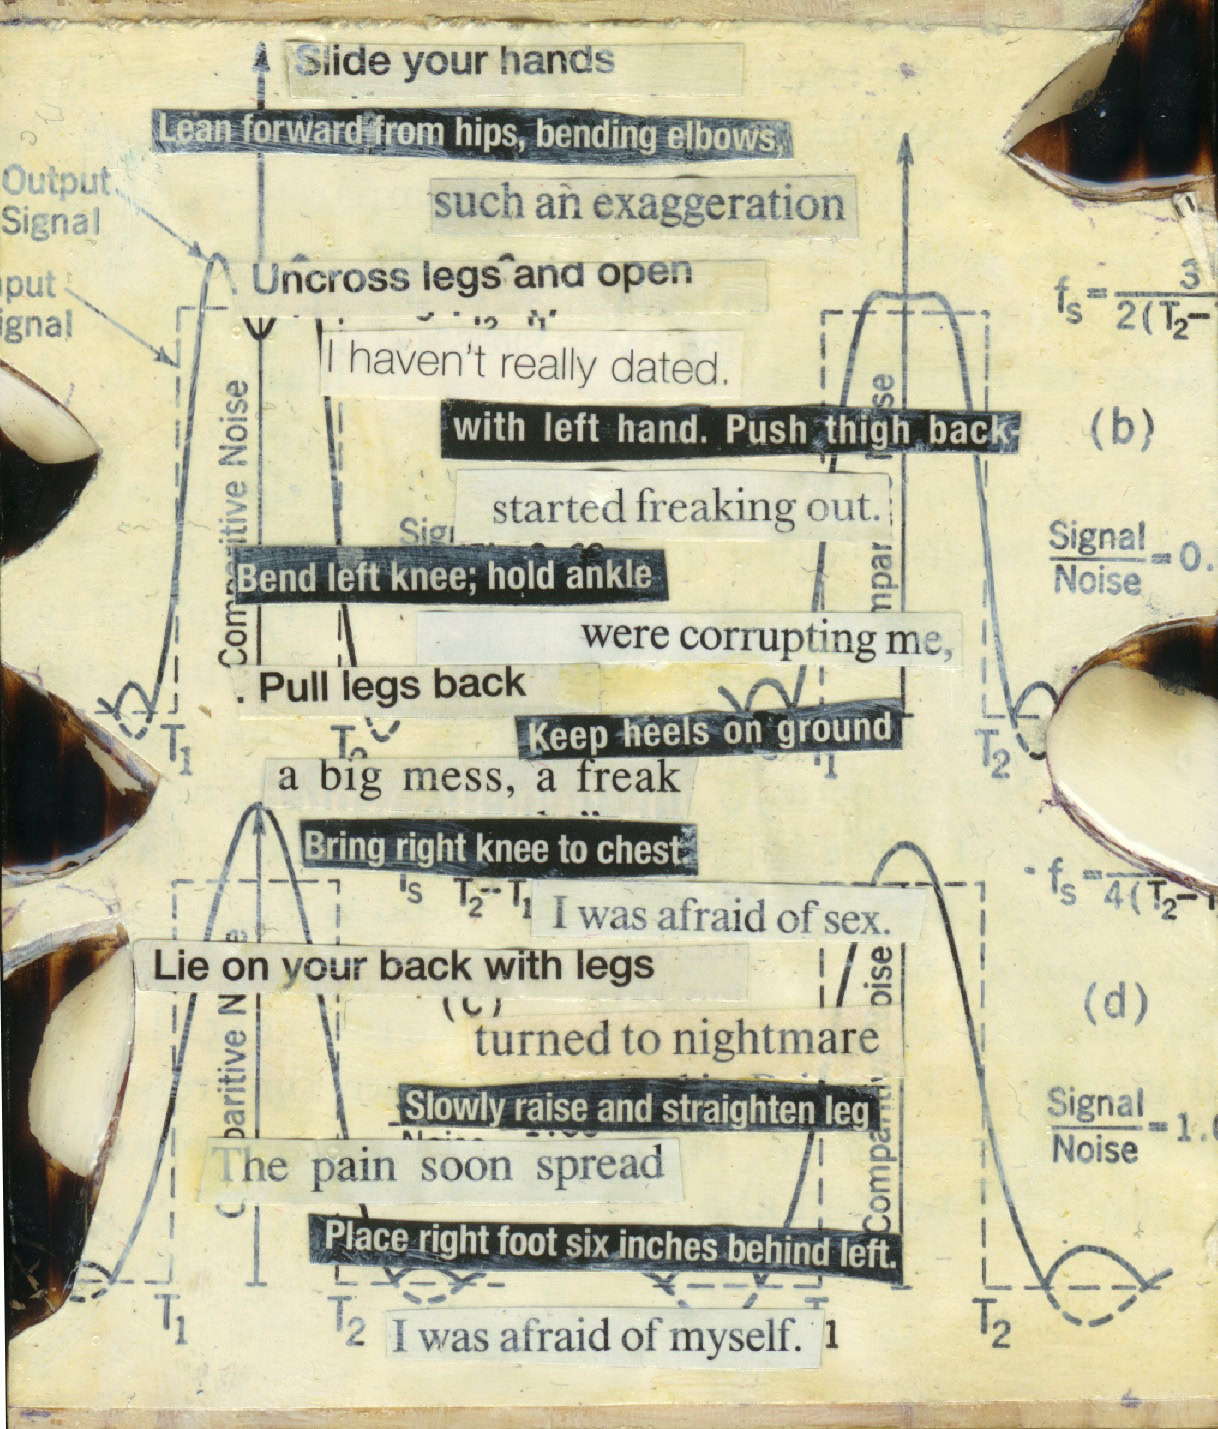 Slide your hands
Lean forward from hips, bending elbows,
Output
Signal
such an exaggeration
Uncross legs and open
I haven't really dated.
with left hand. Push thigh back-
(b)
started freaking out.
Signal
Noise = 0.
Bend left knee; hold ankle
were corrupting me,
. Pull legs back
Keep heels on ground
T₁ T₂ T₂
a big mess, a freak
Bring right knee to chest.
T₂-T₁
I was afraid of sex.
Lie on your back with legs
(c)
(d)
turned to nightmare
Slowly raise and straighten leg
Signal
Noise = 1.
The pain soon spread
Place right foot six inches behind left.
T₁ T₂ T₂
I was afraid of myself.